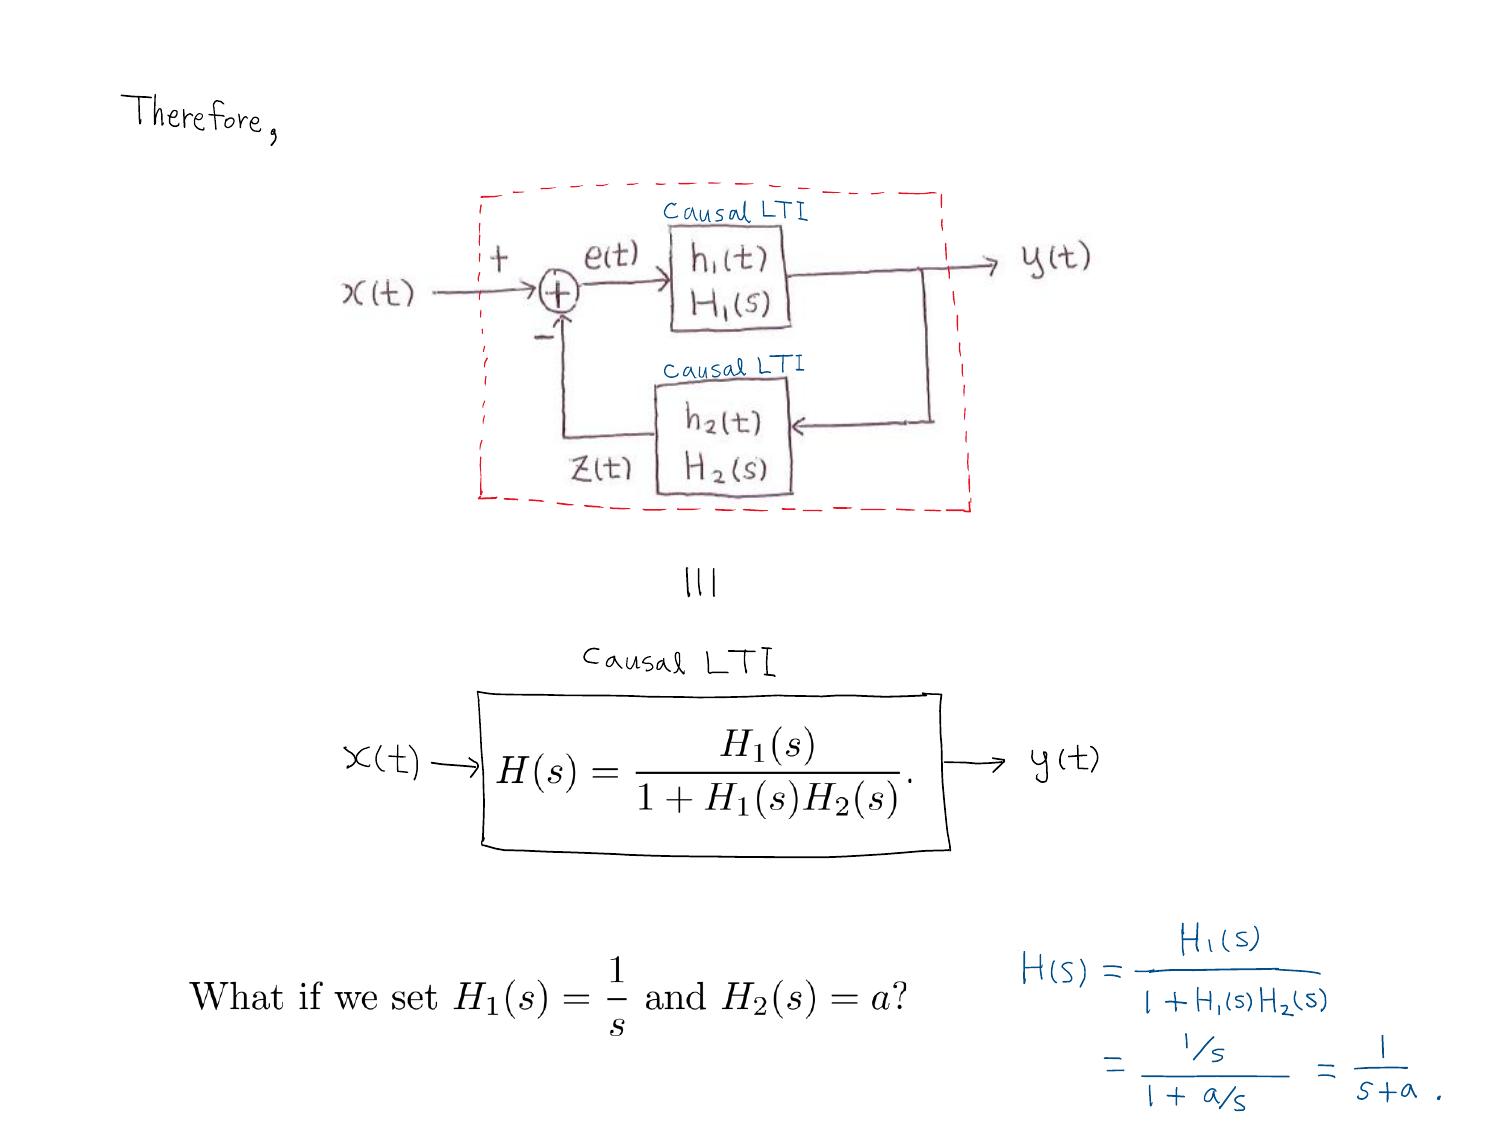 Therefore,
Causal LTI
x(t) + + e(t) h₁(t) y(t)
H₁(s)
−
Causal LTI
h₂(t)
z(t) H₂(s)
|||
Causal LTI
x(t) H(s) = H₁(s) / (1 + H₁(s)H₂(s)). y(t)
What if we set H₁(s) = 1/s and H₂(s) = a?
H(s) = H₁(s) / (1 + H₁(s)H₂(s))
= (1/s) / (1 + a/s) = 1 / (s+a).